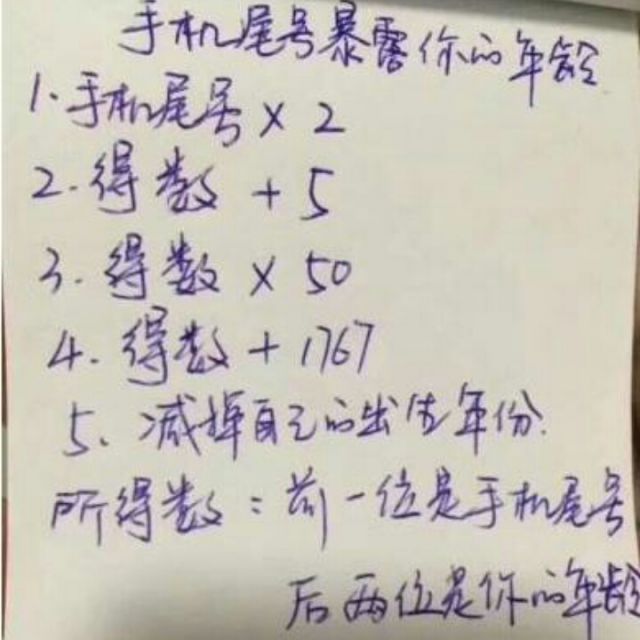 手机尾号暴露你的年龄
1.手机尾号×2
2.得数+5
3.得数×50
4.得数+1767
5、减掉自己的出生年份.
所得数:前一位是手机尾号
后两位是你的年龄